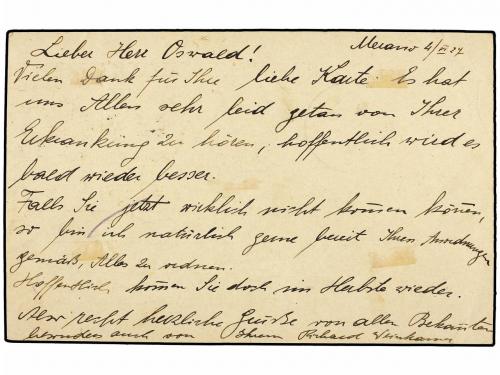 Merano 4/II 27
Lieber Herr Oswald!
Vielen Dank für Ihre liebe Karte. Es hat
uns Allen sehr leid getan von Ihrer
Erkrankung zu hören, hoffentlich wird es
bald wieder besser.
Falls Sie jetzt wirklich nicht kommen können,
so bin ich natürlich gerne bereit Ihren Anordnungen
gemäß, Alles zu ordnen.
Hoffentlich kommen Sie doch im Herbste wieder.
Also recht herzliche Grüße von allen Bekannten
besonders auch von Ihrem Richard